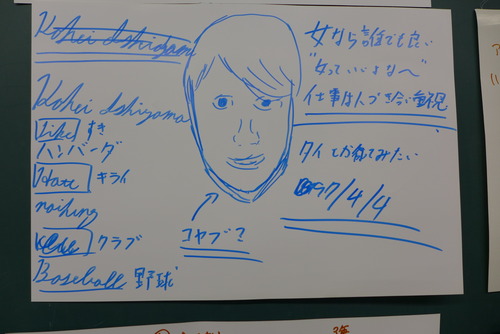 Kohei Ishiyama
Kohei Ishiyama
Like すき
ハンバーグ
Hate キライ
nothing
クラブ
Baseball 野球
コヤブ?
女なら誰でも良い
"女っていいよなへ"
仕事な人づき合い重視
タイでが似てみたい
97/4/4